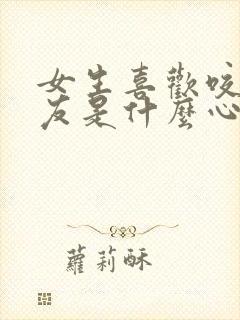 女生喜歡咬
友是什麼心
蘿莉酥